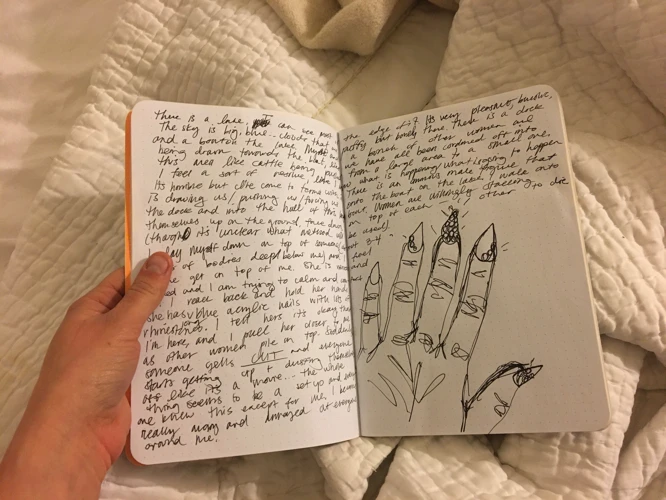 there is a lake. I can see most
The sky is big, blue.. clover that
and a boat on the lake. Myself and
being drawn towards the boat, like
this men like cattle being
I feel a sort of resolve like I
its horrible but I've come to terms with
is drawing us/ pushing us/ forcing us
the dock and into the hull of this
themselves up on the ground, true
(though it's unclear what
lay myself down on top of
of bodies deep below me) and
get on top of me. She is
and I am trying to calm and
I reach back and hold her hand
she has blue acrylic nails with lots of
long
rhinestones. I tell hers it's okay that
I'm here, and I pull her closer to me
as other women pile on top. Suddenly
someone yells CUT and everyone
starts getting up + dusting themselves
off like its a movie... the whole
thing seems to be a set up and every
one knew this except for me. I become
really angry and amazed at everyone
around me.
the edge of it. Its very pleasant, bucolic,
puffy but lovely there. There is a dock
a bunch of other women and
we have all been corralled off into
from a large area to a small one.
what is happening, what is going to happen
There is an ominous male figure that
onto the boat on the lake, I wake onto
our women are willingly stacking
on top of each other to die
be used)
3-4
feel
and